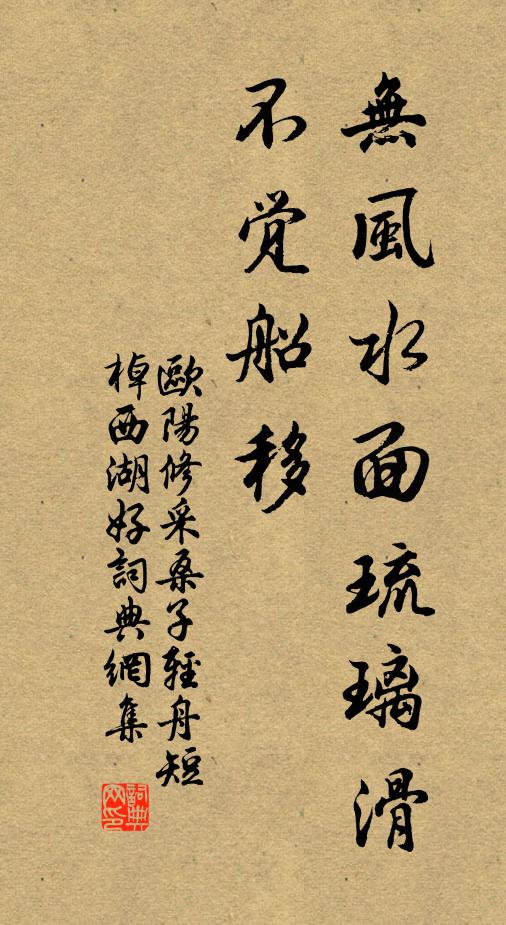 無風水面琉璃滑
不觉船移
歐陽修采桑子輕舟短
棹西湖好詞典網集
詞典
网印